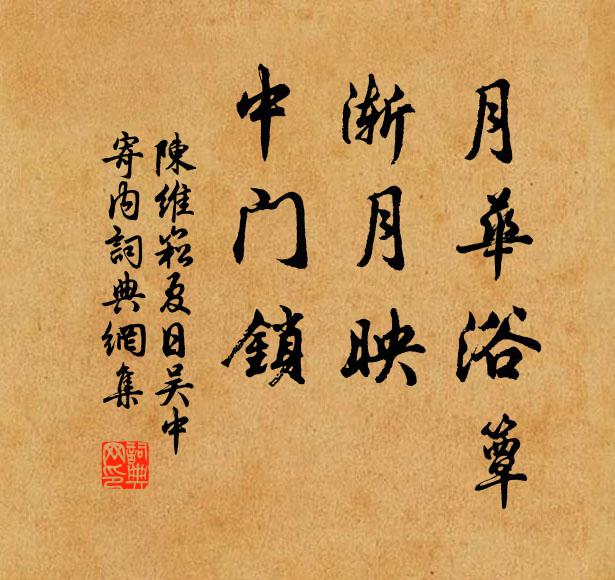 月華浴簟
漸月映
中门鎖
陳維崧夏日吴中
寄内詞典網集
詞典
网印